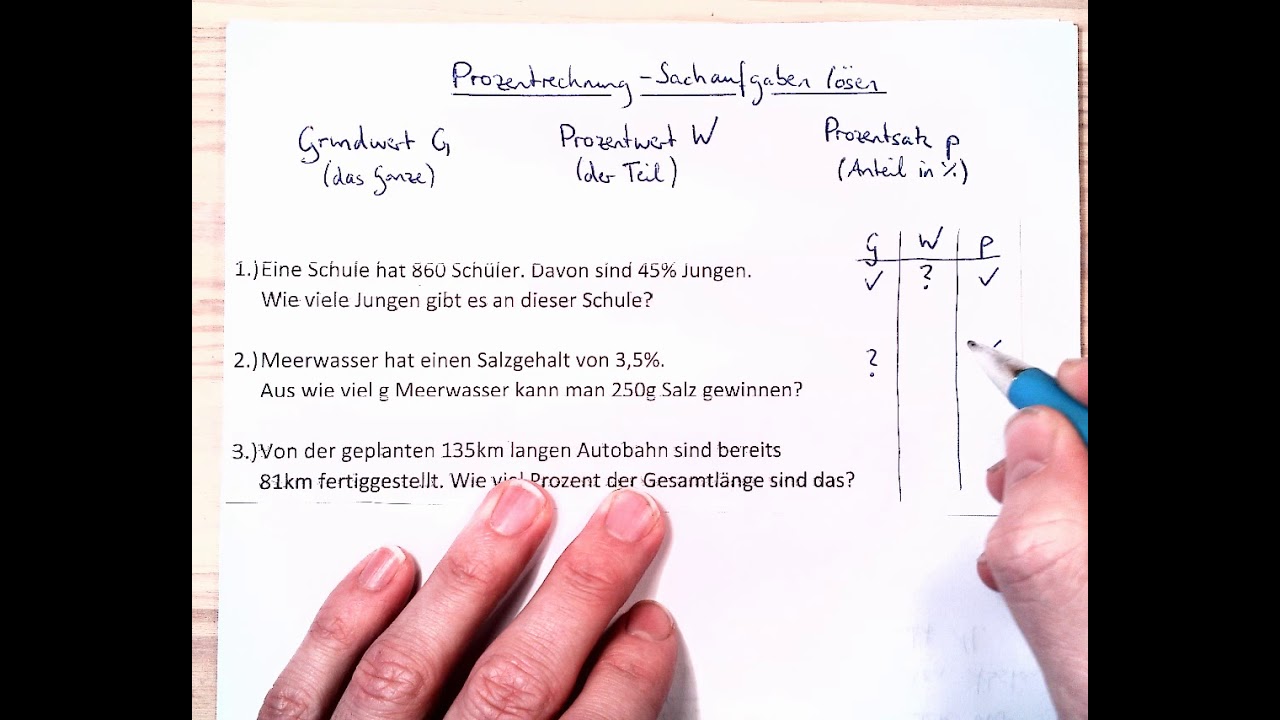 Prozentrechnung - Sachaufgaben lösen
Grundwert G Prozentwert W Prozentsatz p
(das Ganze) (der Teil) (Anteil in %)
G W p
1.) Eine Schule hat 860 Schüler. Davon sind 45% Jungen. ✓ ? ✓
Wie viele Jungen gibt es an dieser Schule?
2.) Meerwasser hat einen Salzgehalt von 3,5%. ?
Aus wie viel g Meerwasser kann man 250g Salz gewinnen?
3.) Von der geplanten 135km langen Autobahn sind bereits
81km fertiggestellt. Wie viel Prozent der Gesamtlänge sind das?